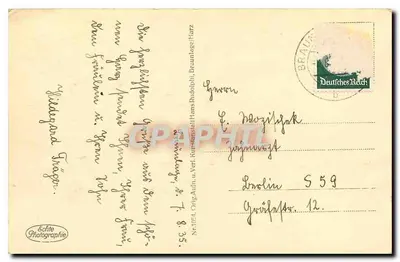 Die herzlichsten Grüße aus dem schö-
nen Harz sendet Ihnen, Ihrer Frau,
dem Fräulein u. Ihrem Sohn
Hildegard Träger.
Braunlage, d. 7. 8. 35.
Echte
Photographie
Nr. Orig. Aufn. u. Verl. Kunstanstalt Hans Rudolphi, Braunlage/Harz
BRAUN
b
Deutsches Reich
Herrn
E. Wozischek
Zahnarzt
Berlin S 59
Gräfestr. 12.
CPARAMA